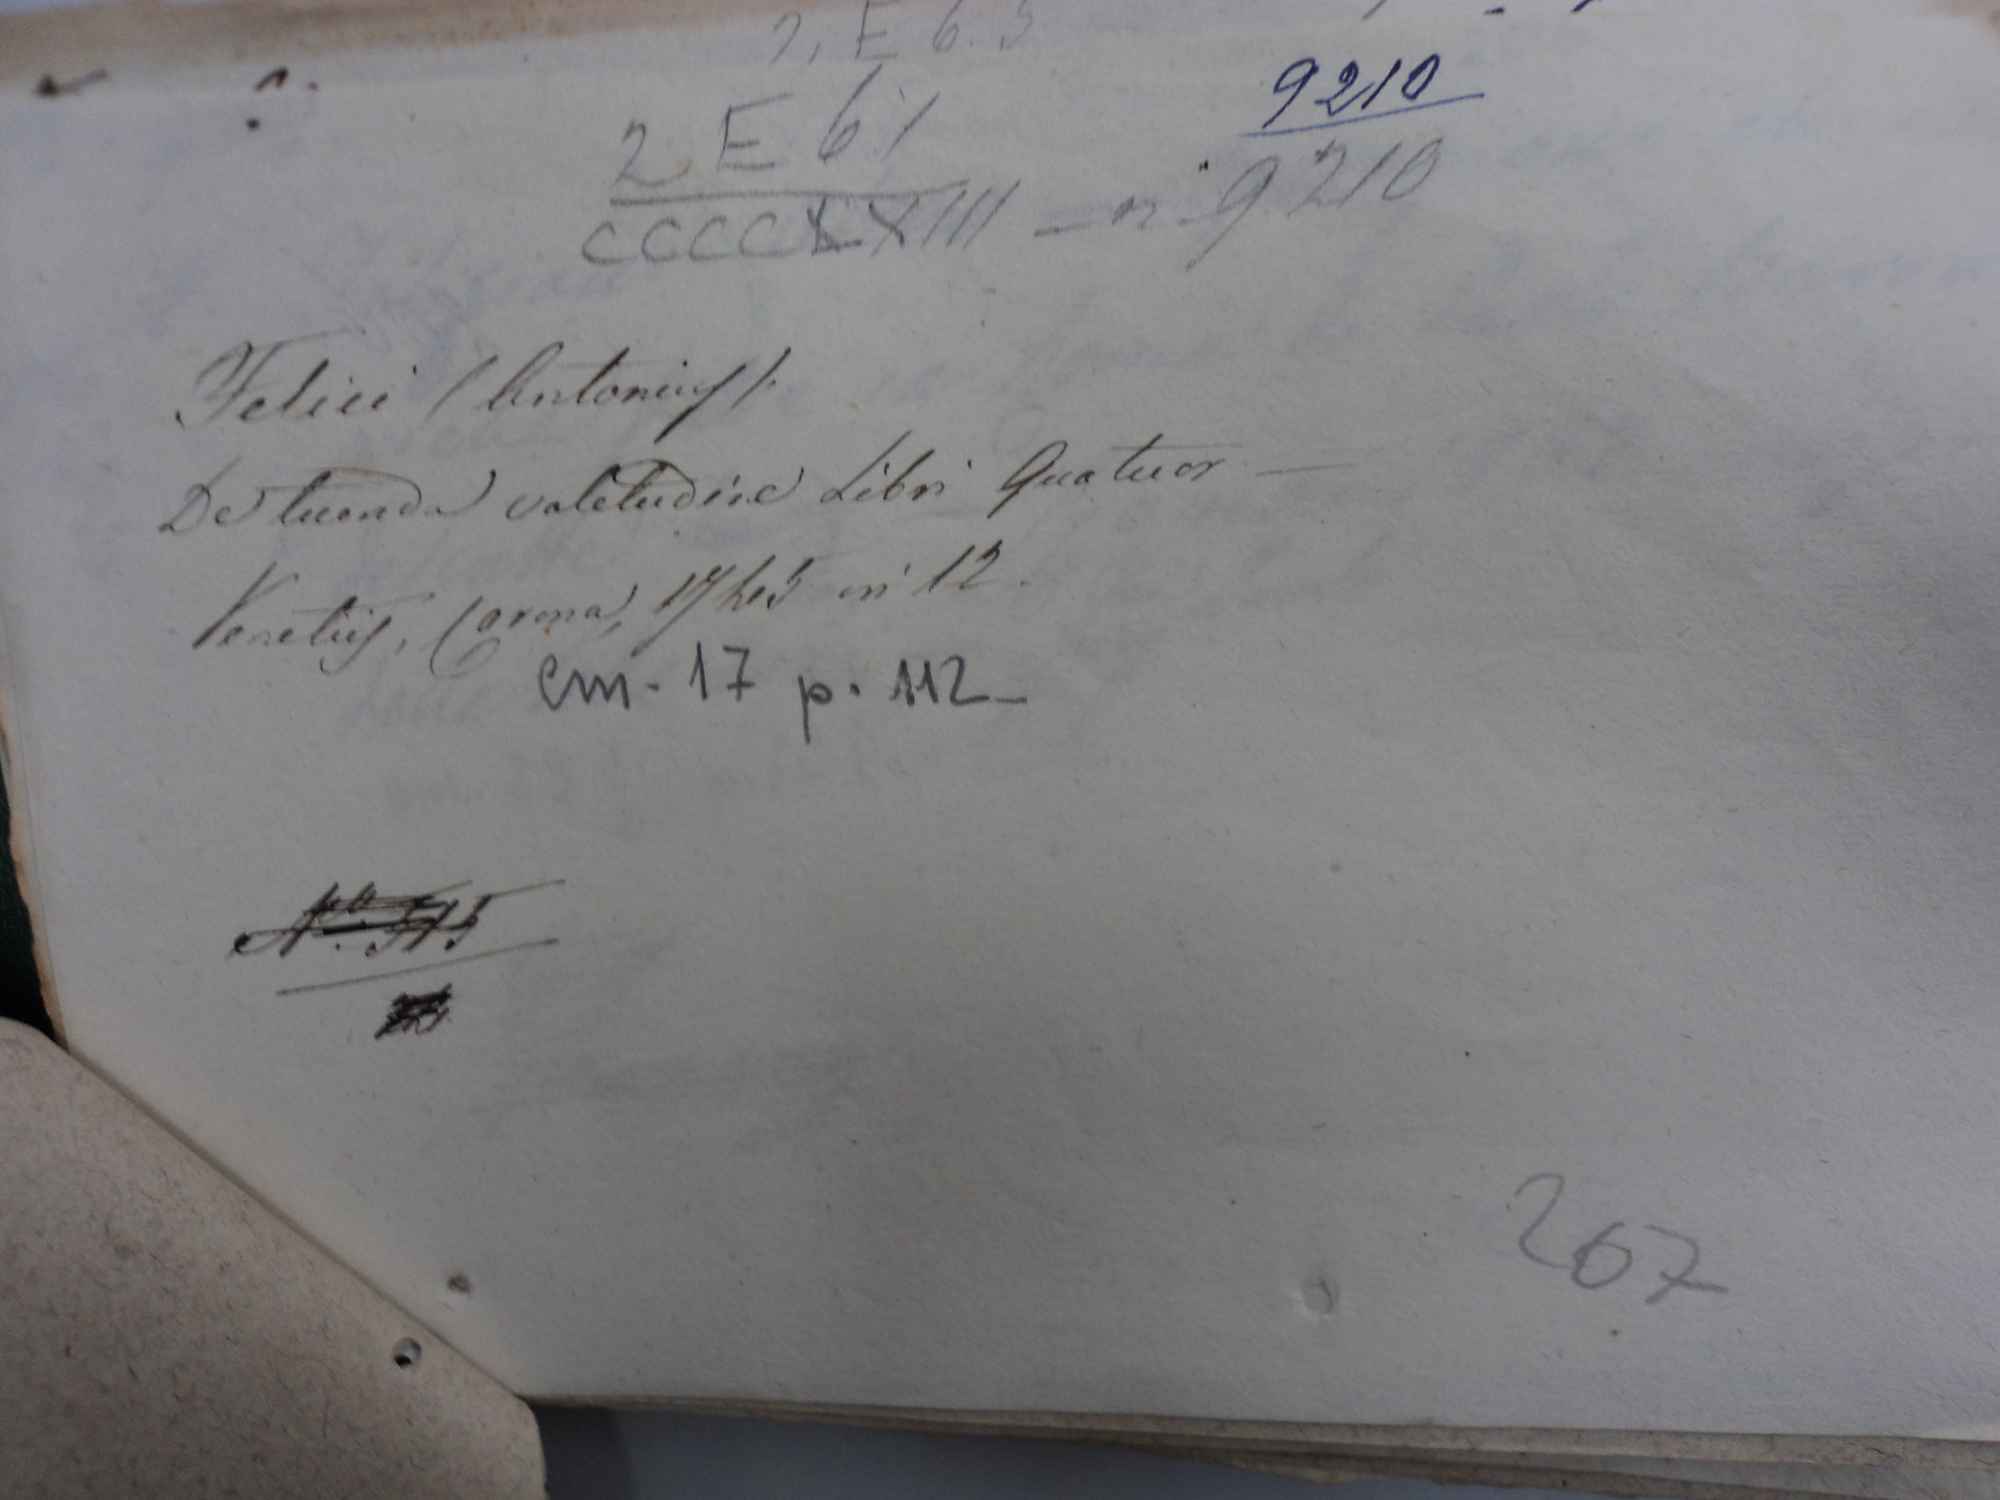 2, E 6.3
9210
2 E 61
CCCCLXIII - n. 9210
Felici (Antonius).
De tuenda valetudine Libri Quatuor —
Venetiis, Corona, 1745 in 12.
cm. 17 p. 112
N.° 515
267